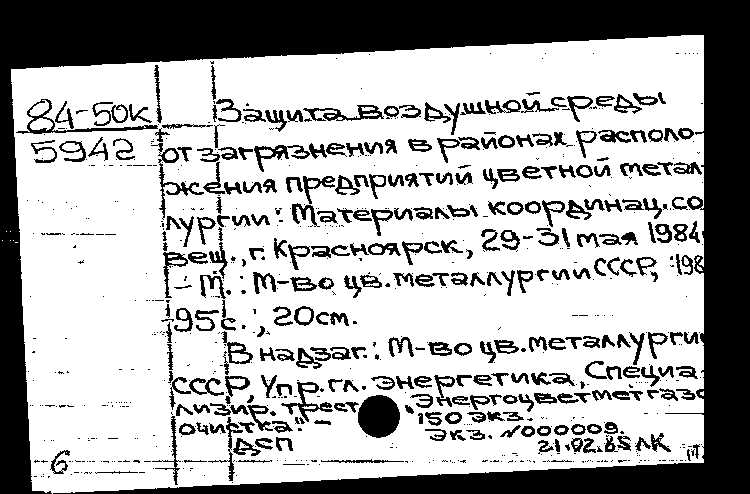 84-50к Защита воздушной среды
5942 от загрязнения в районах располо-
жения предприятий цветной метал-
лургии: Материалы координац. со
вещ., г. Красноярск, 29-31 мая 1984
- М.: М-во цв. металлургии СССР, 198
95 с.; 20см.
В надзаг.: М-во цв. металлургии
СССР, Упр. гл. энергетика, Специа-
лизир. трест "Энергоцветметгазо
очистка". - 150 экз.
Экз. №000009.
ДСП 21.02.85 ЛК
6